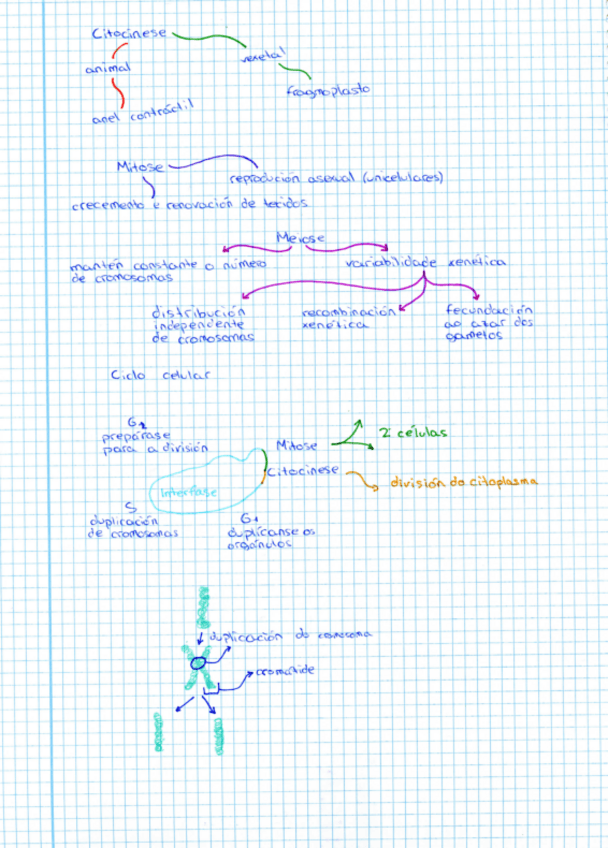 Citocinese
animal
vexetal
anel contráctil
fragmoplasto
Mitose
reprodución asexual (unicelulares)
crecemento e renovación de tecidos
Meiose
mantén constante o número
de cromosomas
variabilidade xenética
distribución
independente
de cromosomas
recombinación
xenética
fecundación
ao azar dos
gametos
Ciclo celular
G2
prepárase
para a división
Mitose
2 células
Citocinese
división do citoplasma
Interfase
S
duplicación
de cromosomas
G1
duplícanse os
orgánulos
duplicación do cromosoma
cromátide